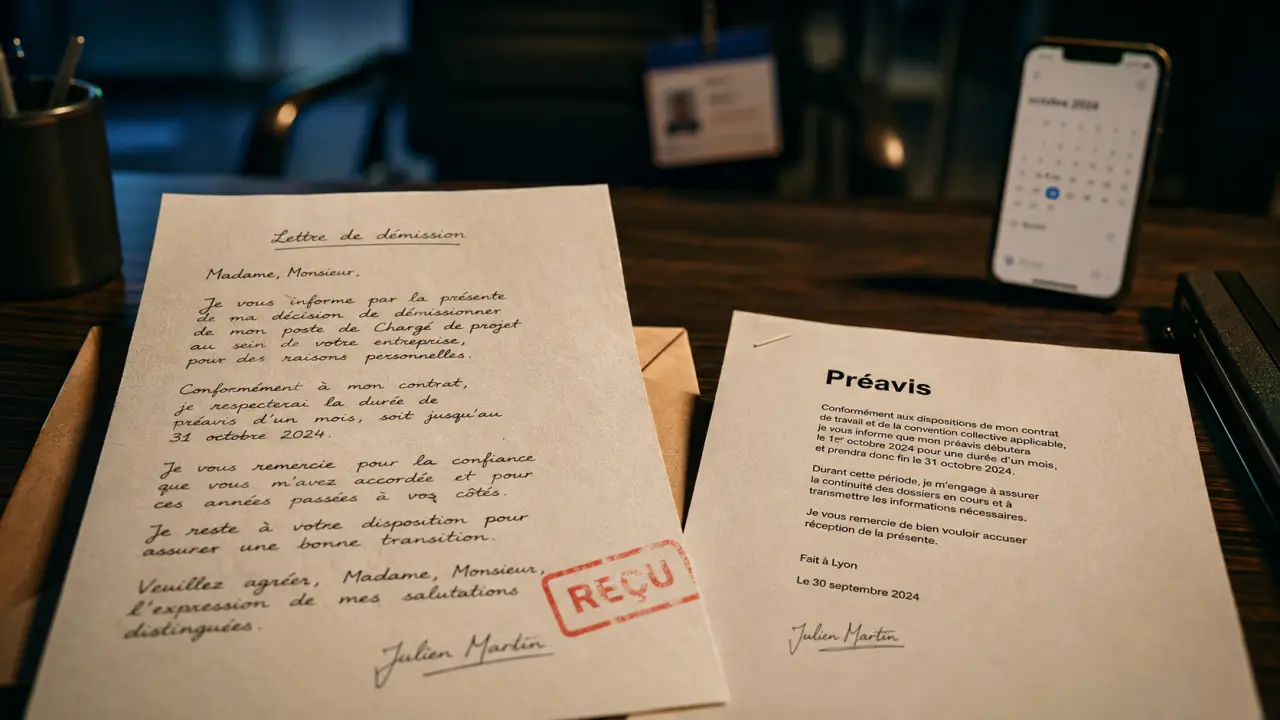 Lettre de démission
Madame, Monsieur,
Je vous informe par la présente
de ma décision de démissionner
de mon poste de Chargé de projet
au sein de votre entreprise,
pour des raisons personnelles.
Conformément à mon contrat,
je respecterai la durée de
préavis d'un mois, soit jusqu'au
31 octobre 2024.
Je vous remercie pour la confiance
que vous m'avez accordée et pour
ces années passées à vos côtés.
Je reste à votre disposition pour
assurer une bonne transition.
Veuillez agréer, Madame, Monsieur,
l'expression de mes salutations
distinguées.
Julien Martin
REÇU
Préavis
Conformément aux dispositions de mon contrat
de travail et de la convention collective applicable,
je vous informe que mon préavis débutera
le 1er octobre 2024 pour une durée d'un mois,
et prendra donc fin le 31 octobre 2024.
Durant cette période, je m'engage à assurer
la continuité des dossiers en cours et à
transmettre les informations nécessaires.
Je vous remercie de bien vouloir accuser
réception de la présente.
Fait à Lyon
Le 30 septembre 2024
Julien Martin
2024